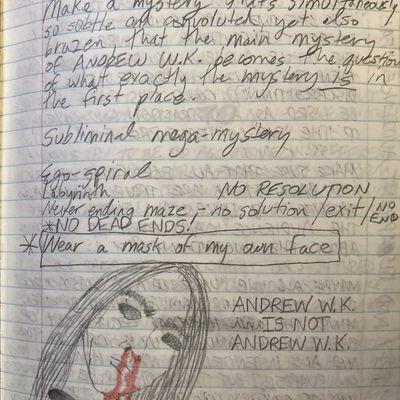 Make a mystery that's simultaneously
so subtle and convoluted, yet also
brazen that the main mystery
of ANDREW W.K. becomes the question
of what exactly the mystery is in
the first place.
Subliminal mega-mystery
Ego-spiral
Labyrinth NO RESOLUTION
Never ending maze - no solution/exit/NO END
*NO DEAD ENDS!
*Wear a mask of my own face
ANDREW W.K.
IS NOT
ANDREW W.K.